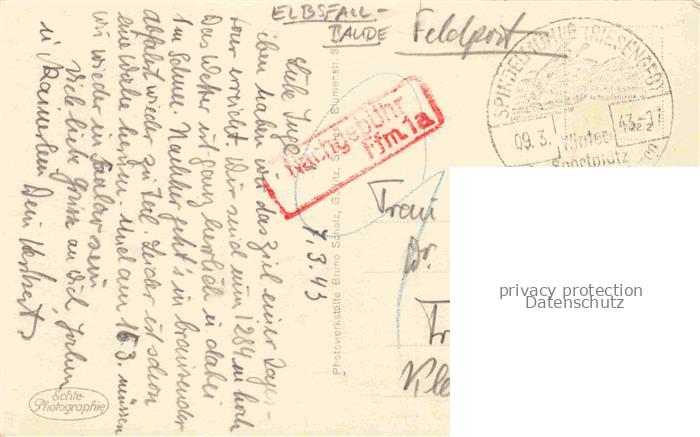 ELBSFALL-
BAUDE
Feldpost
SPINDELMÜHLE (RIESENGEB)
09.3. 43-11
Winter-
Sportplatz
Nachgebühr
Pfm. 1a
7.3.43
Liebe Inge,
eben haben wir das Ziel einer Tages-
tour erreicht. Wir sind nun 1284 m hoch
Das Wetter ist ganz herrlich u dabei
im Schnee. Nachher geht's in brausender
Abfahrt wieder zu Tal. Leider ist schon
eine Woche herum. Und am 16.3. müssen
wir wieder in sein
Viele liebe Grüsse an Dich, Jochen
u
Dein Herbert
Photowerkstätte Bruno Scholz, Görlitz, Blumenstr.
Echte
Photographie
Frau
Dr.
privacy protection
Datenschutz